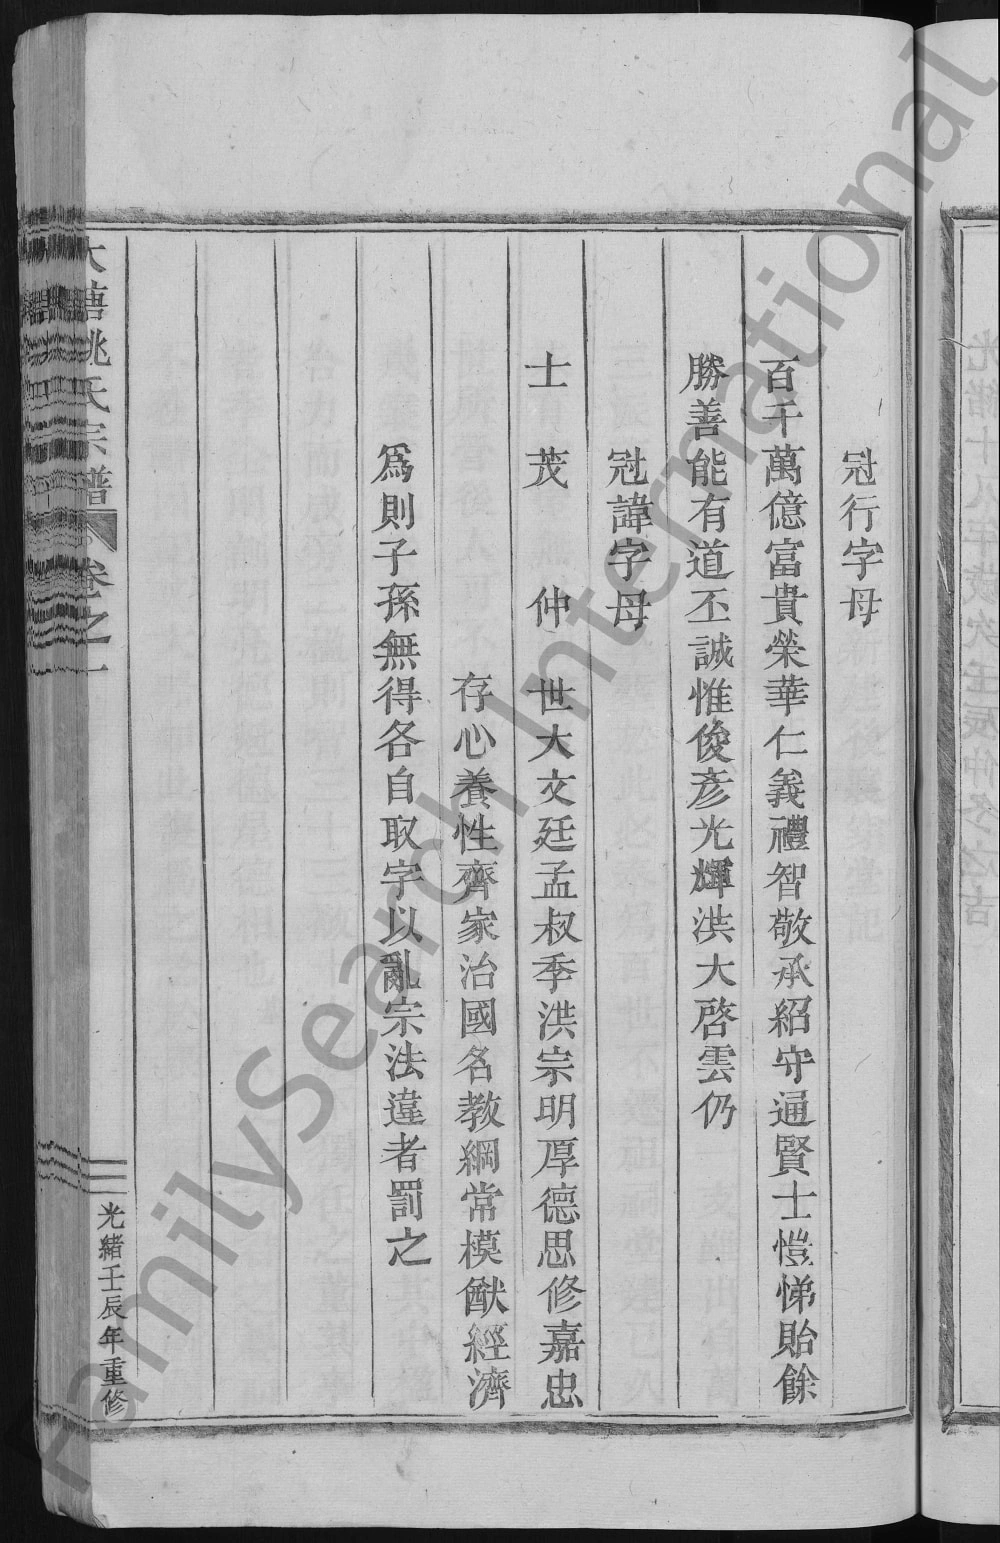 冠行字母
百千萬億富貴榮華仁義禮智敬承紹守通賢士愷悌貽餘
勝善能有道丕誠惟俊彥光輝洪大啓雲仍
冠諱字母
士　茂　仲　世大文廷孟叔季洪宗明厚德思修嘉忠
存心養性齊家治國名教綱常模猷經濟
爲則子孫無得各自取字以亂宗法違者罰之
姚氏宗譜　卷之一
光緒壬辰年重修
FamilySearch International